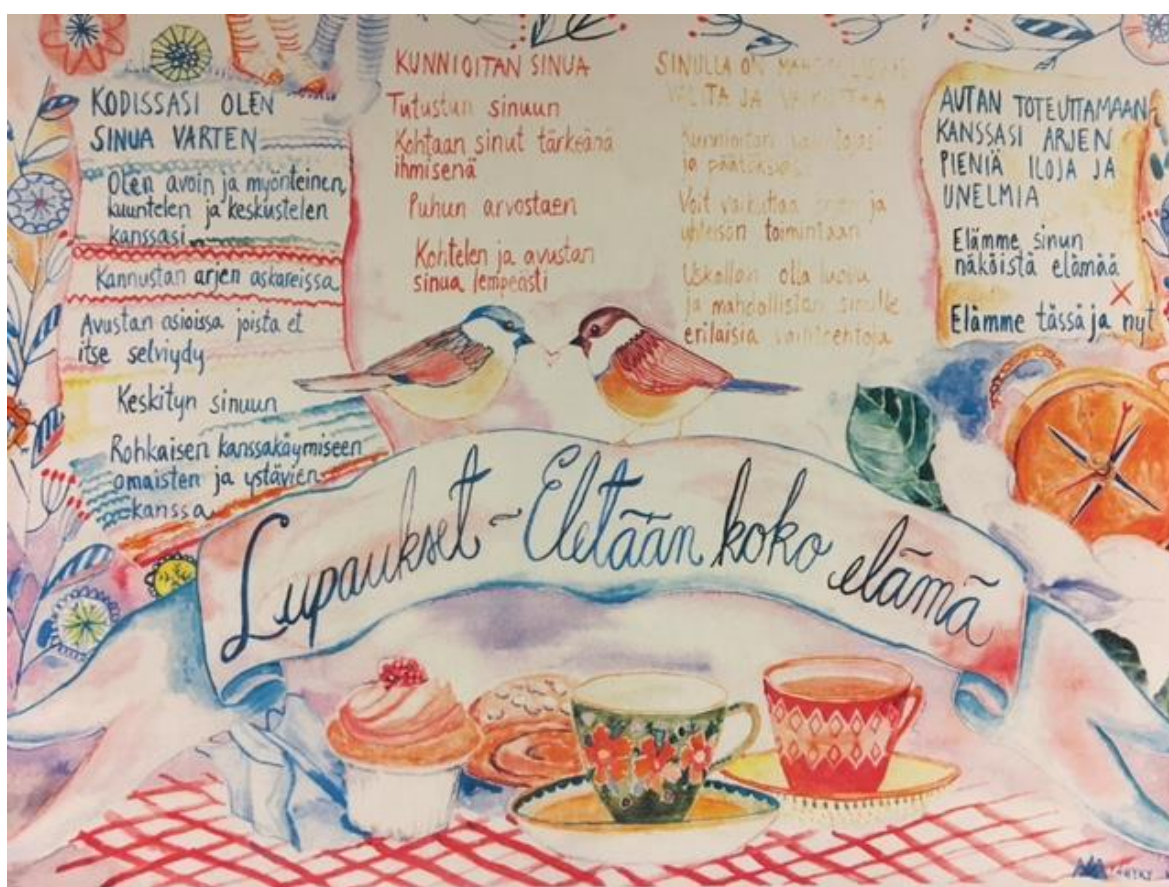 KODISSASI OLEN
SINUA VARTEN
Olen avoin ja myönteinen,
kuuntelen ja keskustelen
kanssasi
Kannustan arjen askareissa
Avustan asioissa joista et
itse selviydy
Keskityn sinuun
Rohkaisen kanssakäymiseen
omaisten ja ystävien
kanssa
KUNNIOITAN SINUA
Tutustun sinuun
Kohtaan sinut tärkeänä
ihmisenä
Puhun arvostaen
Kohtelen ja avustan
sinua lempeästi
SINULLA ON
VALITA JA
Kunnioitan
ja päätöksiäsi
Voit vaikuttaa ja
yhteisön toimintaan
Uskallan olla luova
ja mahdollistan sinulle
erilaisia vaihtoehtoja
AUTAN TOTEUTTAMAAN
KANSSASI ARJEN
PIENIÄ ILOJA JA
UNELMIA
Elämme sinun
näköistä elämää
Elämme tässä ja nyt
Lupaukset - Eletään koko elämä